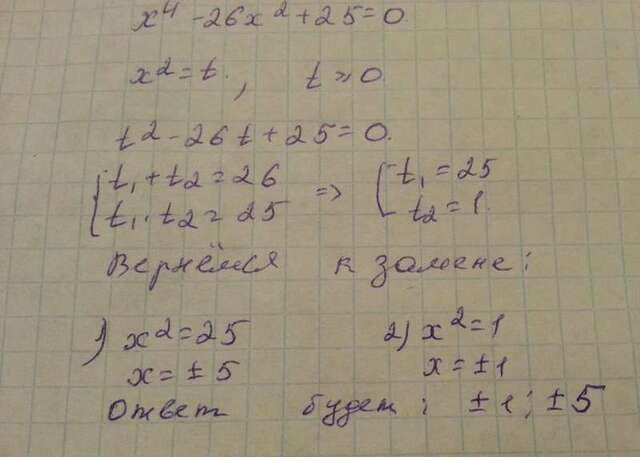 x⁴ - 26x² + 25 = 0.
x² = t, t ≥ 0.
t² - 26t + 25 = 0.
{ t₁ + t₂ = 26 => { t₁ = 25
{ t₁ · t₂ = 25 { t₂ = 1.
Вернёмся к замене:
1) x² = 25 2) x² = 1
x = ± 5 x = ± 1
Ответ будет: ± 1; ± 5